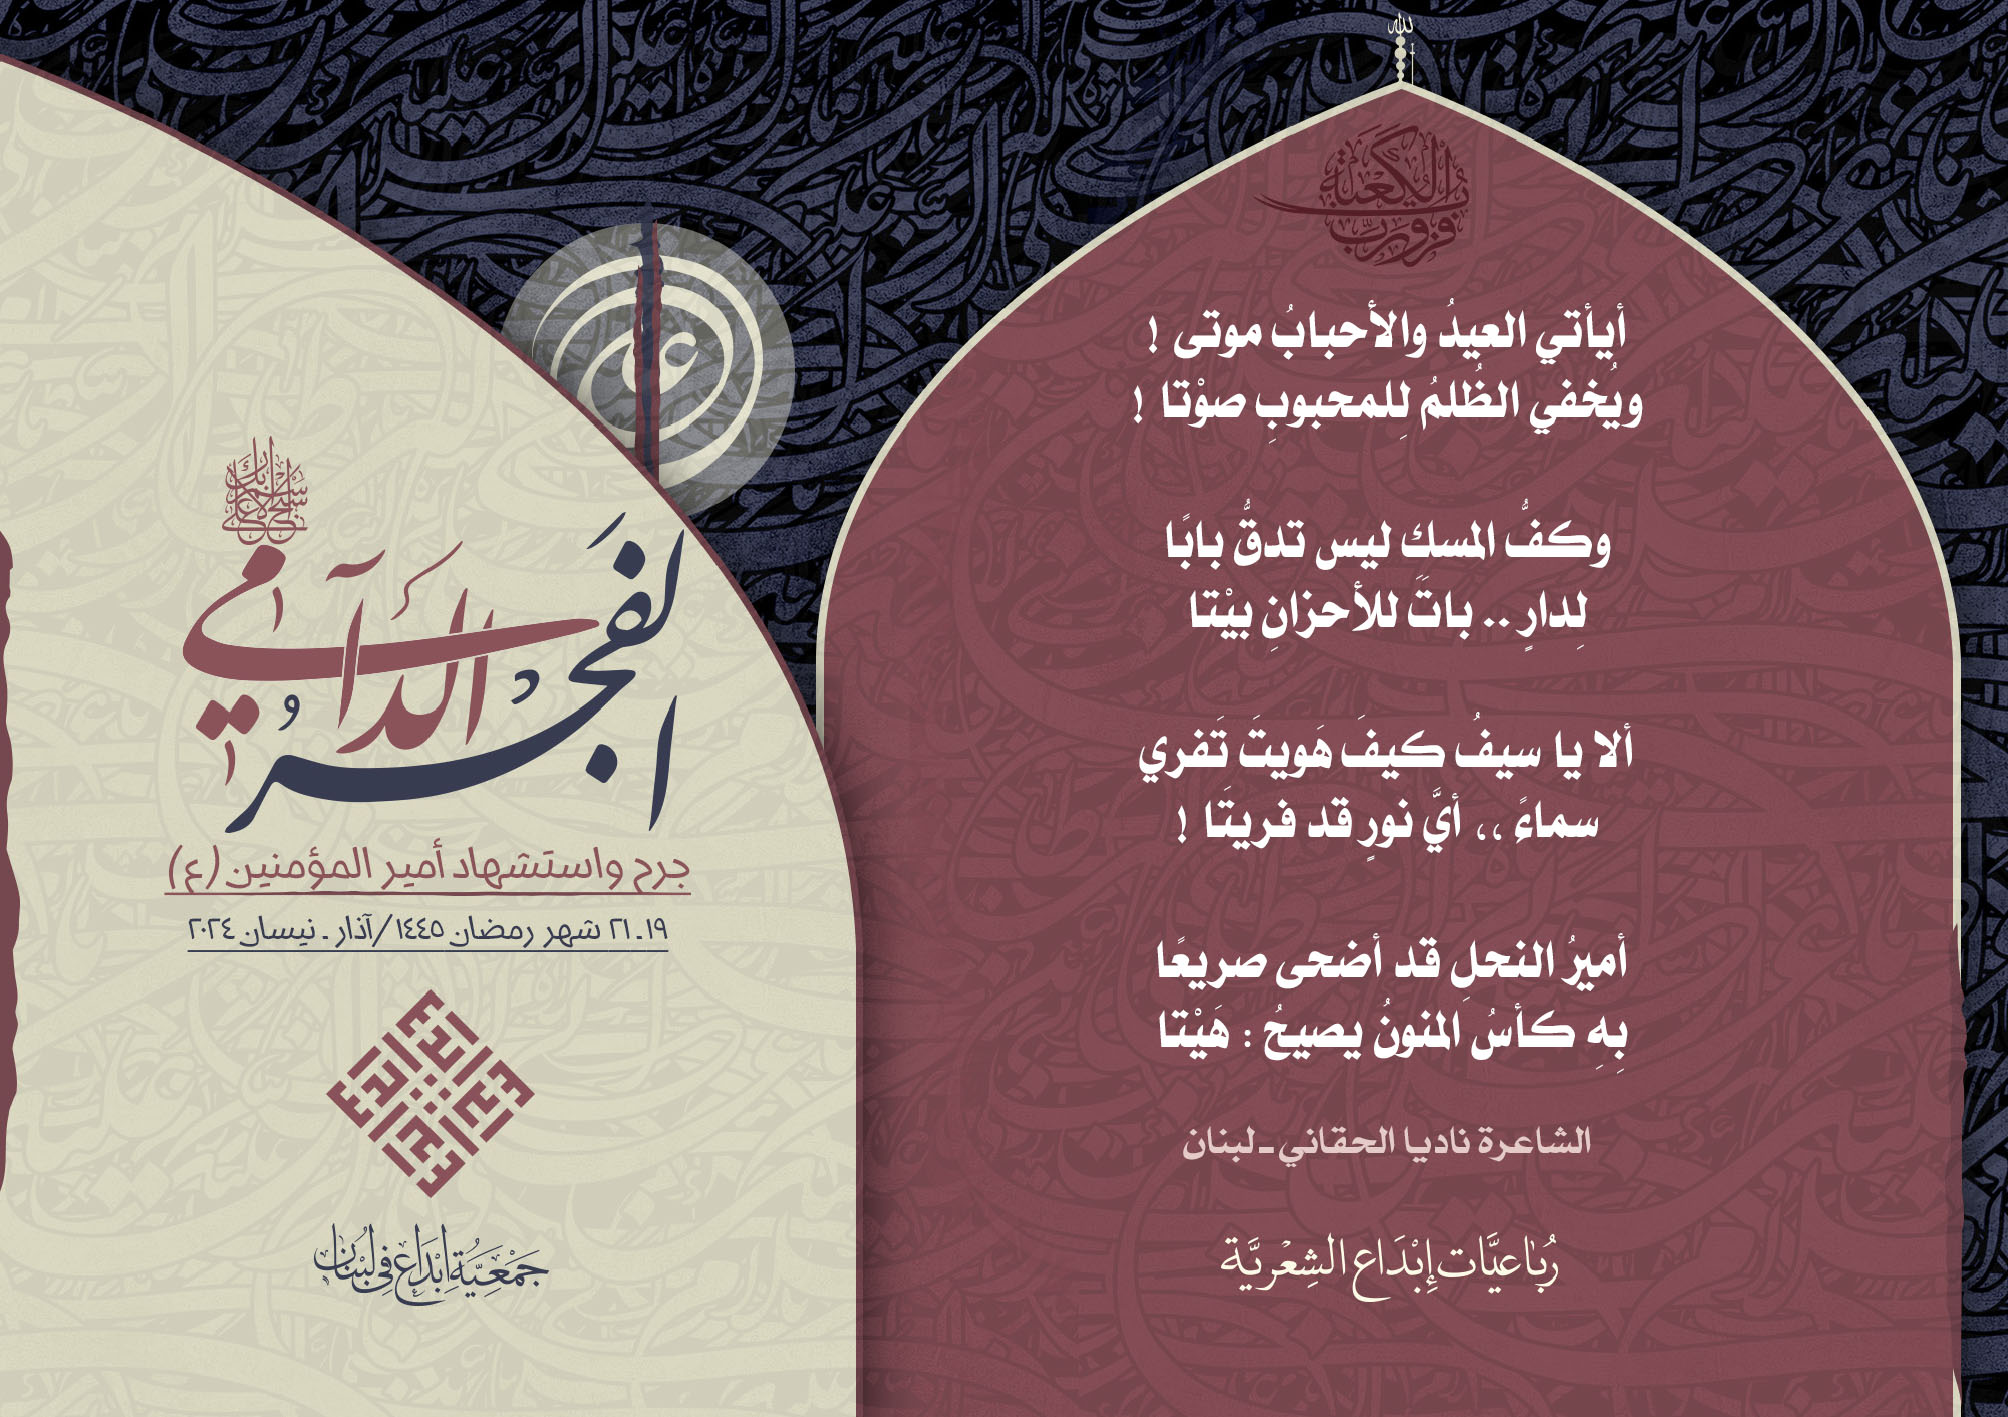 الله
فزت ورب الكعبة
أيأتي العيدُ والأحبابُ موتى !
ويُخفي الظُلمُ لِلمحبوبِ صوْتا !
وكفُّ المسكِ ليس تدقُّ بابًا
لِدارٍ .. باتَ للأحزانِ بيْتا
ألا يا سيفُ كيفَ هَويتَ تَفري
سماءً ،، أيَّ نورٍ قد فريتَا !
أميرُ النحلِ قد أضحى صريعًا
بِهِ كأسُ المنونُ يصيحُ : هَيْتا
الشاعرة ناديا الحقاني ـ لبنان
رُبَاعيَّات إِبْدَاع الشِعْريَّة
علي
سبح اسم ربك الأعلى
الفَجْرُ الدَّامِي
جرح واستشهاد أمير المؤمنين (ع)
١٩ ـ ٢١ شهر رمضان ١٤٤٥ /آذار ـ نيسان ٢٠٢٤
جَمْعِيَّةِ إبْدَاع فِي لُبْنَان